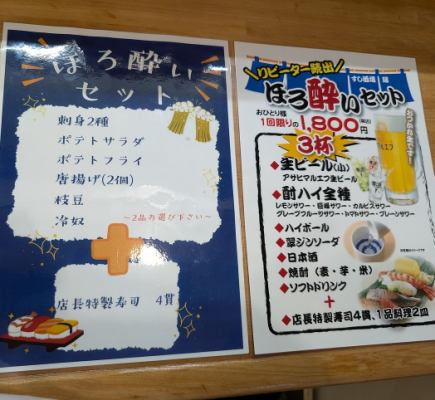 ほろ酔い
セット
刺身2種
ポテトサラダ
ポテトフライ
唐揚げ(2個)
枝豆
冷奴
~2品お選び下さい~
店長特製寿司 4貫
リピーター続出
すし酒場
ほろ酔いセット
おひとり様
1回限りの1,800円
(税込)
3杯
◆生ビール(小)
アサヒマルエフ生ビール
◆酎ハイ全種
レモンサワー・巨峰サワー・カルピスサワー
グレープフルーツサワー・トマトサワー・プレーンサワー
◆ハイボール
◆翠ジンソーダ
◆日本酒
◆焼酎(麦・芋・米)
◆ソフトドリンク
+
◆店長特製寿司4貫、1品料理2皿